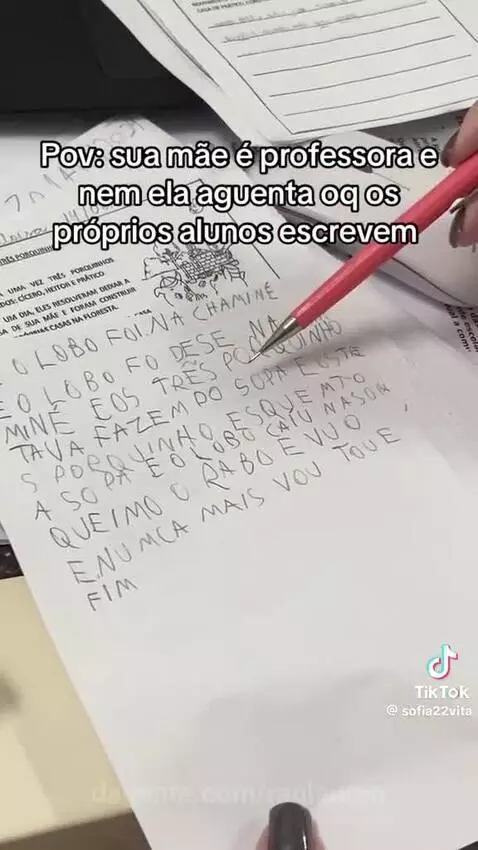 CASA DE PRÁTICO, CONS
Pov: sua mãe é professora e
nem ela aguenta oq os
próprios alunos escrevem
TRÊS PORQUINHOS
UMA VEZ TRÊS PORQUINHOS
DOS: CÍCERO, HEITOR E PRÁTICO
UM DIA, ELES RESOLVERAM DEIXAR A
SA DE SUA MÃE E FORAM CONSTRUIR
CASAS NA FLORESTA.
O LOBO FOI NA CHAMINÉ
E O LOBO FO DESE NA
MINÉ E OS TRÊS PORQUINHO
TAVA FAZEMDO SOPA E OSTRE
S PORQUINHO ESQUEMTO
A SOPA E O LOBO CAIU NASOR
QUEIMO O RABO E VUO
E NUMCA MAIS VOU TOUE
FIM
TikTok
@ sofia22vita